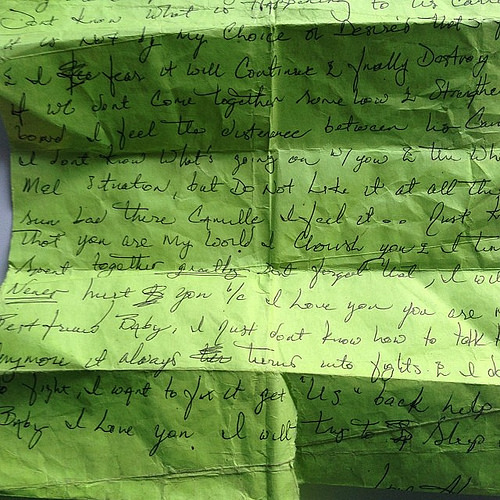 Cant know What is Happening to us Cam
it is not by My Choice or Desires that
& I fear it will Continue & finally Destroy
if we dont Come together some how & Strengthen
bond I feel the disterence between us
I dont know What's going on w/ you & the Wh
Mel Situation, but Do not Like it at all the
sun bad there Camille I feel it... Just
That you are My World I Cherish you & I
Spent together greatly Dont forget that, I wil
Never hurt you b/c I Love you you are
Best friend Baby, I Just dont know how to talk t
anymore it always turns into fights. & I do
to fight, I want to fix it get "Us" back help
Baby I Love you. I will try to Sleep